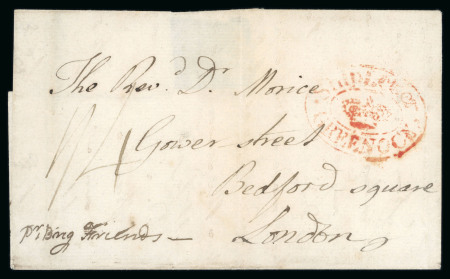 The Revd. Dr. Morice
Gower street
Bedford square
London
pr. Brig Friends
GREENOCK